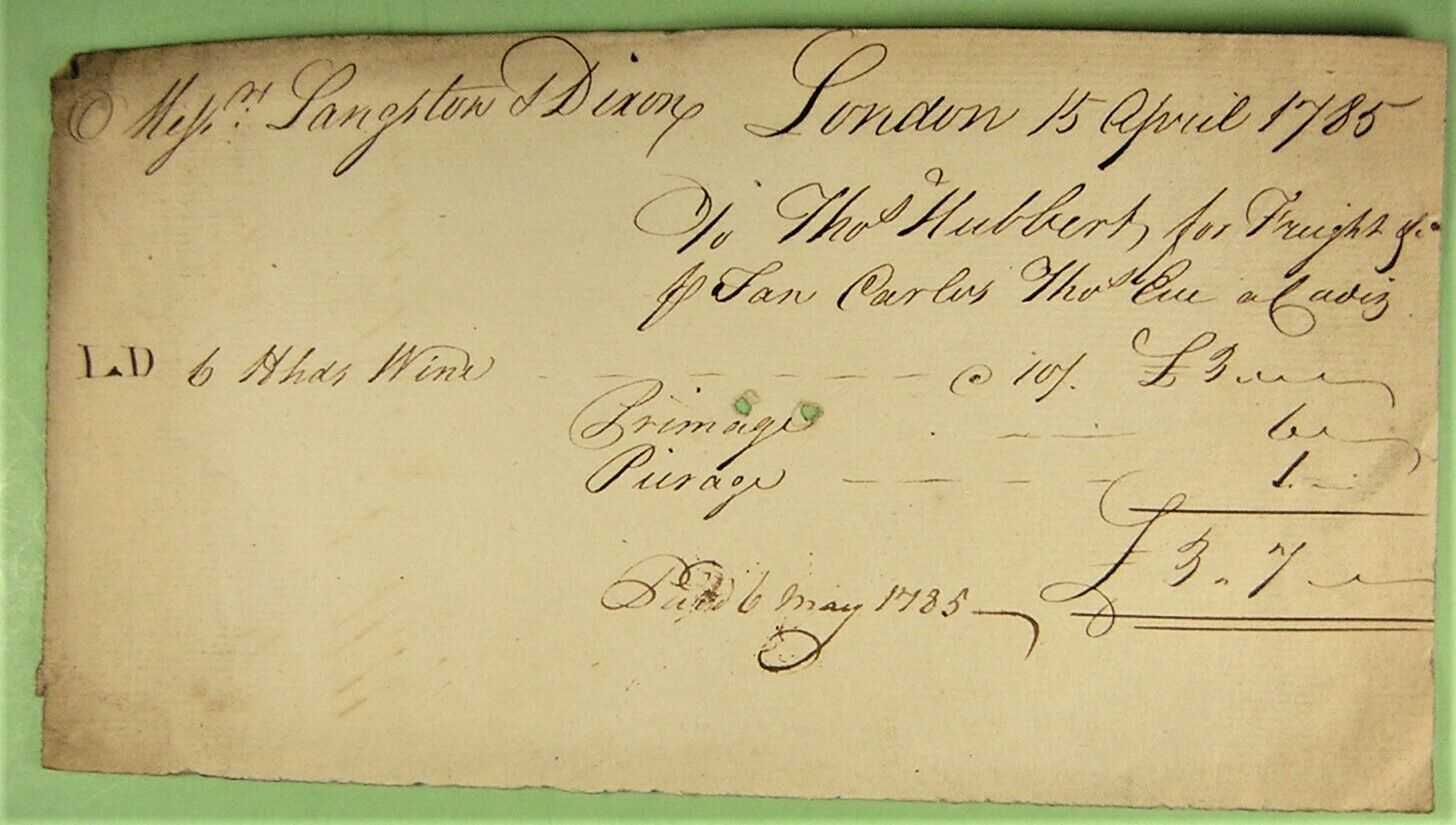 Messrs. Langston & Dixon London 15 April 1785
To Thos Hubbert for Freight &c
p San Carlos Thos Cue a Cadiz
L.D 6 Hhds Wine @ 10/. £3
Primage 6
Pierage 1
£3. 7
Paid 6 may 1785